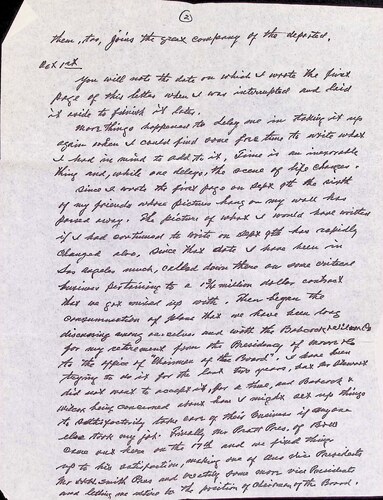 (2)
them, too, joins the great company of the departed.
Oct 1st
You will note the date on which I wrote the first
page of this letter when I was interrupted and laid
it aside to finish it later.
More things happened to delay me in taking it up
again when I could find some free time to write what
I had in mind to add to it. Time is an inexorable
thing and, while one delays, the scene of life changes.
Since I wrote the first page on Sept 9th the ninth
of my friends whose picture hang on my wall has
passed away. The picture of what I would have written
if I had continued to write on Sept 9th has rapidly
changed also. Since that date I have been in
Los Angeles much, called down there on some critical
business pertaining to a 1¾ million dollar contract
that we got mixed up with. Then began the
consummation of plans that we have been long
discussing among ourselves and with the Babcock & Wilcox Co
for my retirement from the Presidency of Moore &
to the office of "Chairman of the Board". I have been
trying to do it for the last two years, but
did not want to accept it, for a time, and Babcock &
Wilcox being concerned about how I might set up things
to satisfactorily take care of this business if anyone
else took my job. Finally Mr Pratt Pres. of B&W
came out here on the 17th and we fixed things
up to his satisfaction, making one of our Vice Presidents
Smith Pres and creating some more Vice Presidents
and letting me retire to the position of Chairman of the Board.